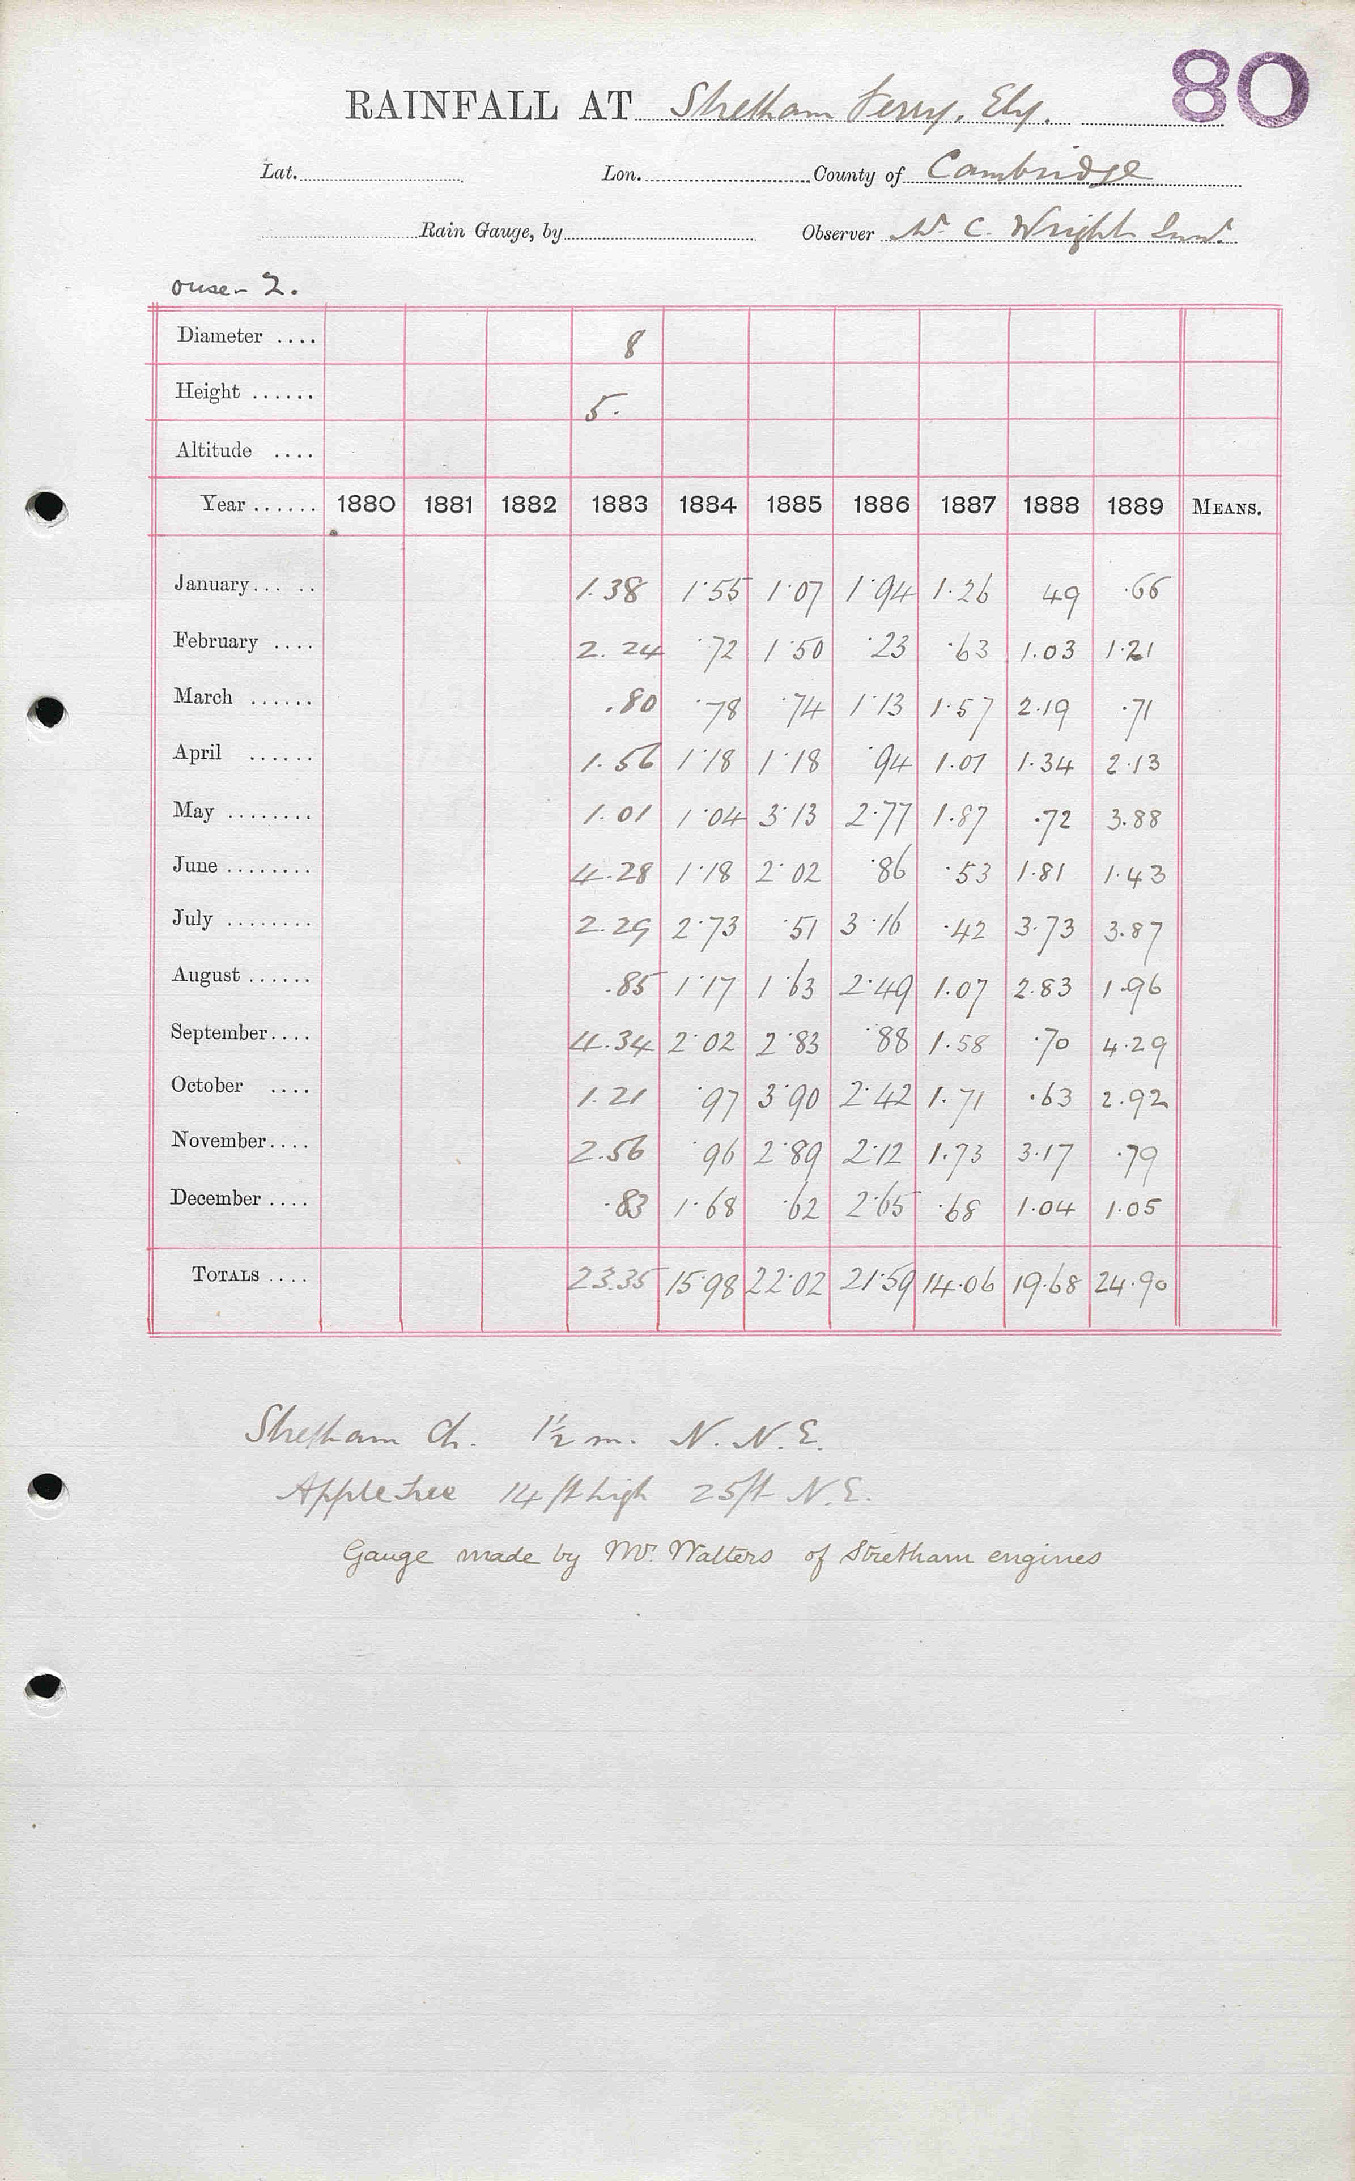 80
RAINFALL AT Stretham Ferry, Ely.
Lat. Lon. County of Cambridge
Rain Gauge, by Observer Mr. C. Wright
ouse - 2.
Diameter .... 8
Height ...... 5.
Altitude ....
Year ...... 1880 1881 1882 1883 1884 1885 1886 1887 1888 1889 MEANS.
January ... .. 1.38 1.55 1.07 1.94 1.26 49 .66
February .... 2.24 .72 1.50 .23 .63 1.03 1.21
March ...... .80 .78 .74 1.13 1.57 2.19 .71
April ...... 1.56 1.18 1.18 .94 1.01 1.34 2.13
May ........ 1.01 1.04 3.13 2.77 1.87 .72 3.88
June ........ 4.28 1.18 2.02 .86 .53 1.81 1.43
July ........ 2.29 2.73 .51 3.16 .42 3.73 3.87
August ...... .85 1.17 1.63 2.49 1.07 2.83 1.96
September .... 4.34 2.02 2.83 .88 1.58 .70 4.29
October .... 1.21 .97 3.90 2.42 1.71 .63 2.92
November .... 2.56 .96 2.89 2.12 1.73 3.17 .79
December .... .83 1.68 .62 2.65 .68 1.04 1.05
TOTALS .... 23.35 15.98 22.02 21.59 14.06 19.68 24.90
Stretham Ch. 1½ m. N. N. E.
Apple tree 14 ft high 25 ft N. E.
Gauge made by Mr. Walters of Stretham engines